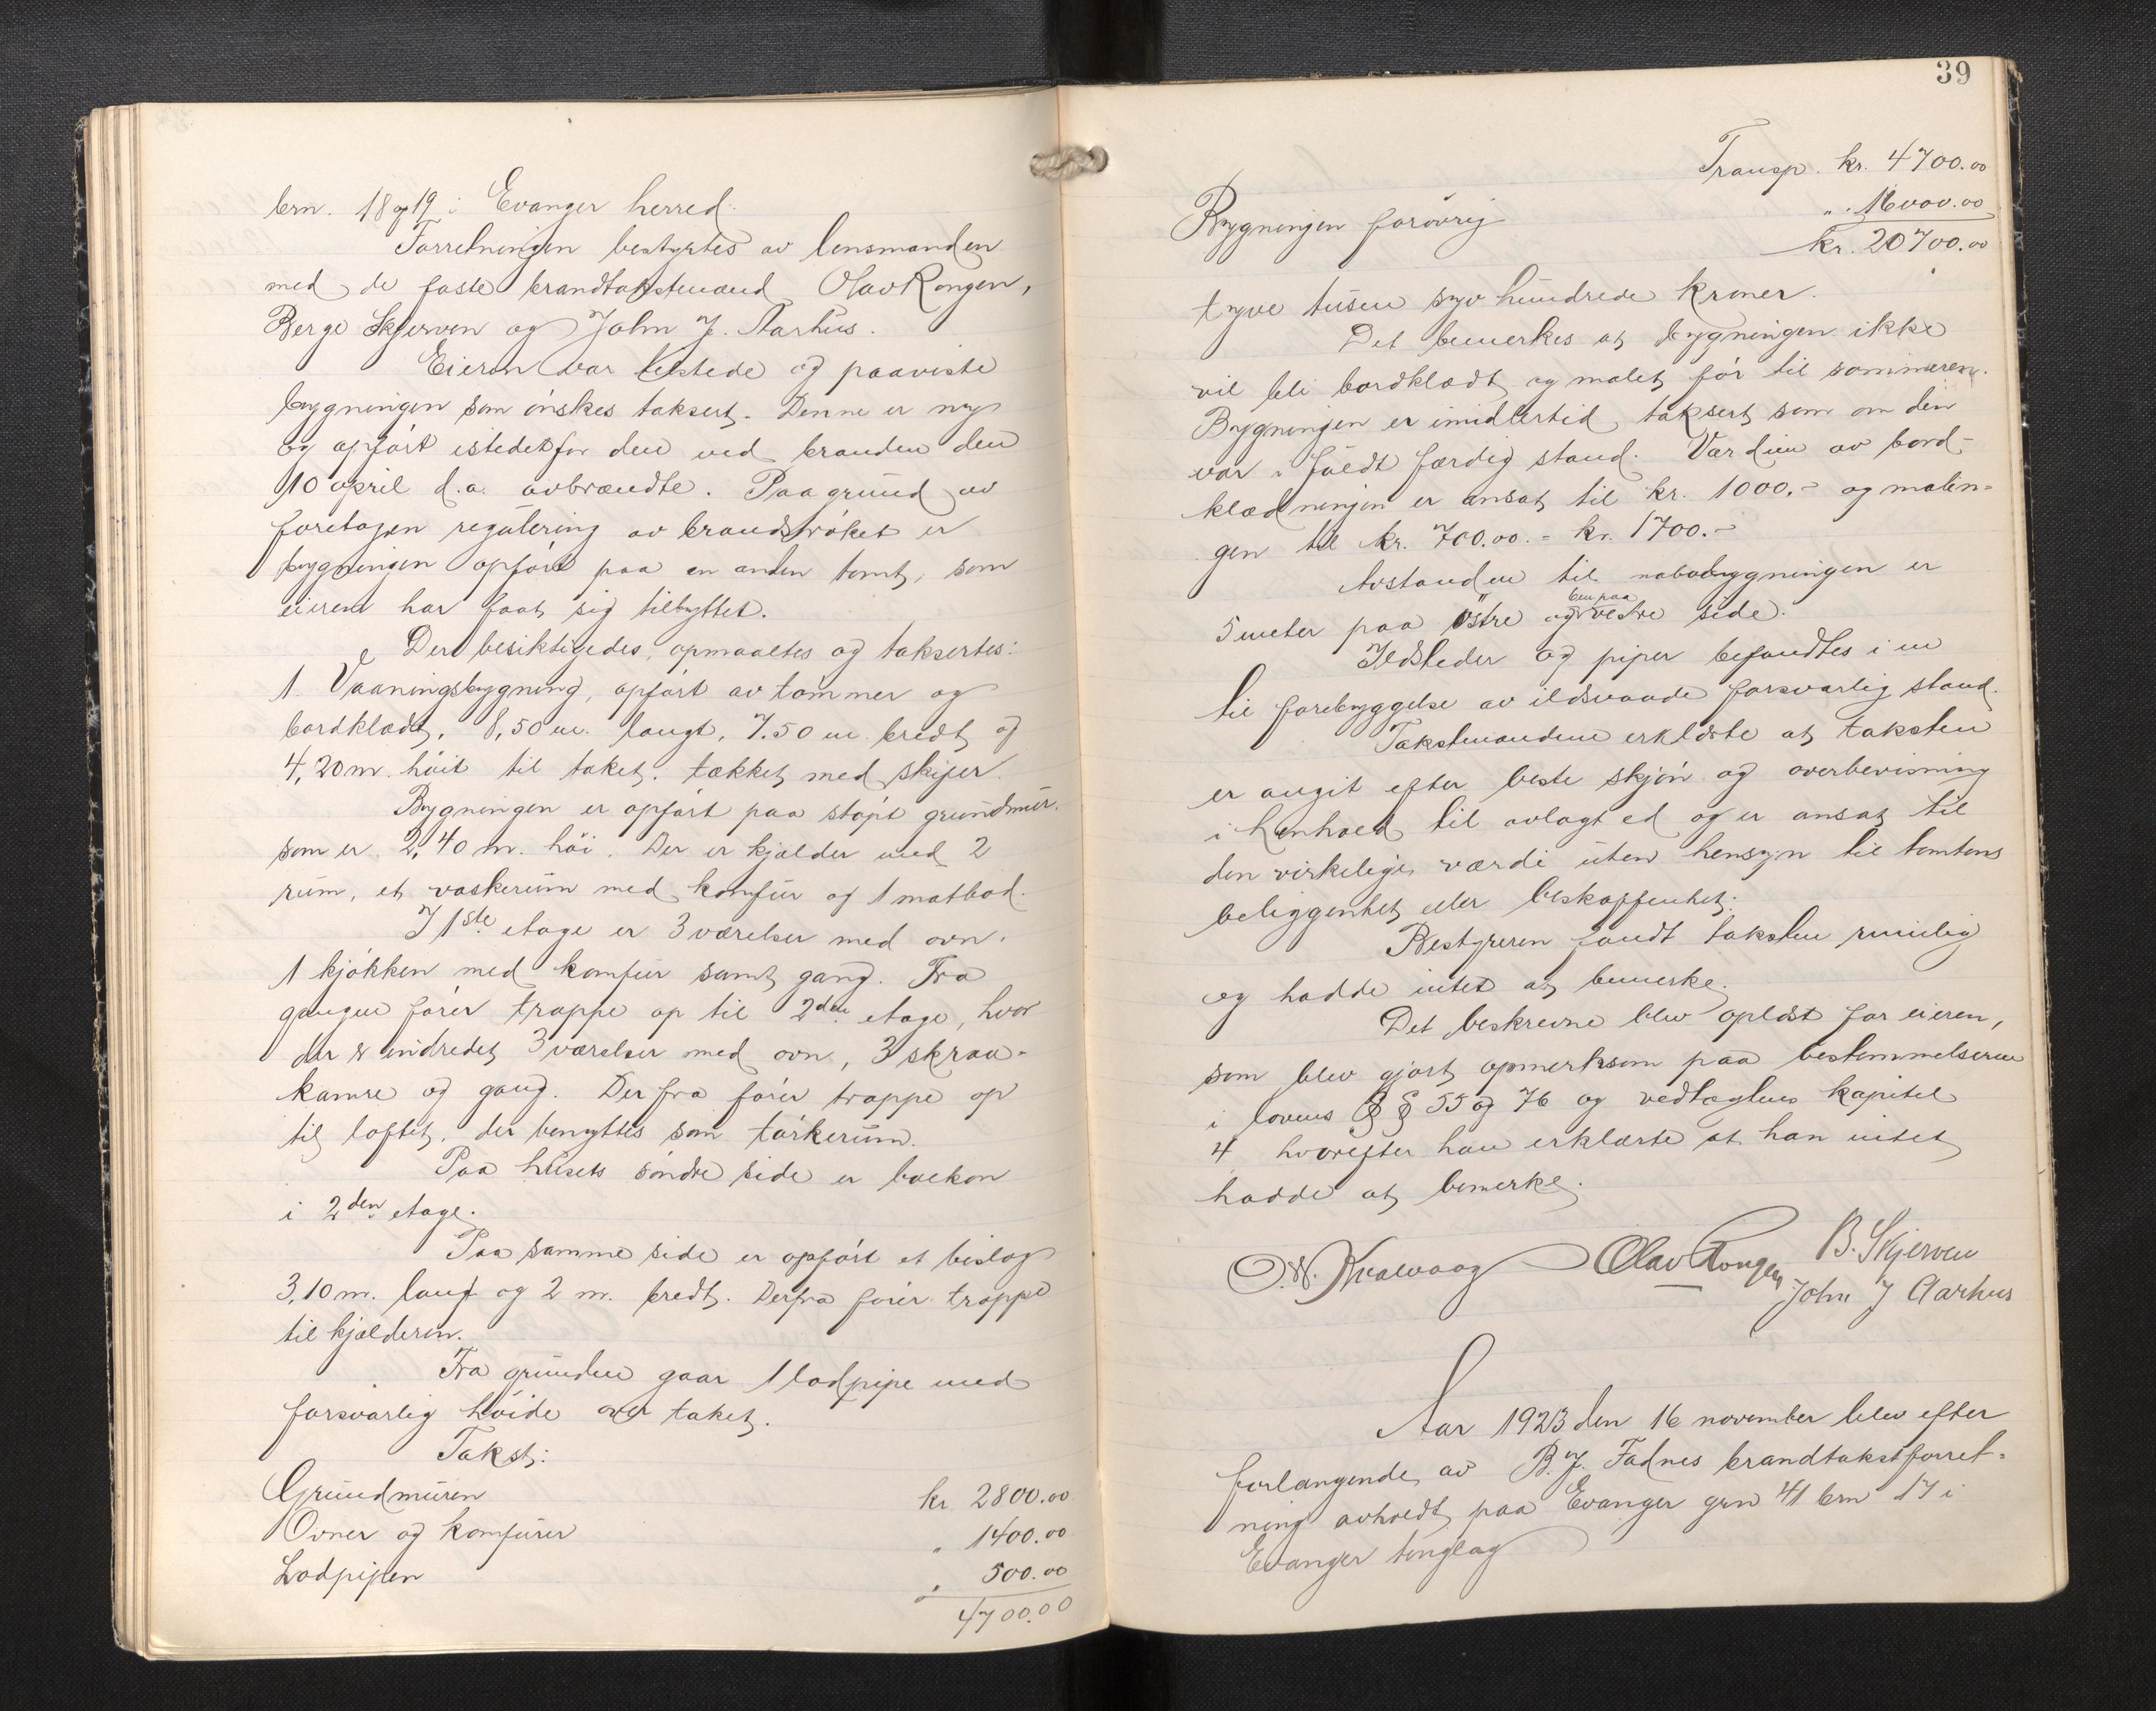 brn. 18 og 19 i Evanger herred.
Forretningen bestyrtes av lensmanden
med de faste brandtakstmænd Olav Rongen,
Berge Skjerven og John J. Aarhus.
Eieren var tilstede og paaviste
bygningen som ønskes taksert. Denne er ny
og opført istedetfor den ved branden den
10 april d.a. avbrændte. Paa grund av
foretagen regulering av brandstrøket er
bygningen opført paa en anden tomt, som
eieren har faat sig tilbyttet.
Der besiktigedes, opmaaltes og taksertes:
1. Vaaningsbygning, opført av tømmer og
bordklædt, 8,50 m. langt, 7.50 m. bredt og
4,20 m. høit til taket, tækket med skifer.
Bygningen er opført paa støpt grundmur.
som er 2,40 m. høi. Der er kjælder med 2
rum, et vaskerum med komfur og 1 matbod.
I 1ste etage er 3 værelser med ovn,
1 kjøkken med komfur samt gang. Fra
gangen fører trappe op til 2den etage, hvor
der er indredet 3 værelser med ovn, 3 skraa-
kamre og gang. Derfra fører trappe op
til loftet, der benyttes som tørkerum.
Paa husets søndre side er balkon
i 2den etage.
Paa samme side er opført et bislag
3,10 m. langt og 2 m. bredt. Derfra fører trappe
til kjælderen.
Fra grunden gaar 1 lodpipe med
forsvarlig høide over taket.
Takst:
Grundmuren kr 2800.00
Ovner og komfurer " 1400.00
Lodpipen " 500.00
4700.00
39
Transp. kr. 4700.00
Bygningen forøvrig " 16000.00
kr. 20700.00
tyve tusen syv hundrede kroner.
Det bemerkes at bygningen ikke
vil bli bordklædt og malet før til sommeren.
Bygningen er imidlertid taksert som om den
var i fuldt færdig stand. Værdien av bord-
klædningen er ansat til kr. 1000.- og malin-
gen til kr. 700.00. = kr. 1700.-
Avstanden til nabobygningen er
5 meter paa østre og 6 m paa vestre side.
Ildsteder og piper befandtes i en
til forebyggelse av ildsvaade forsvarlig stand.
Takstmændene erklærte at taksten
er avgit efter beste skjøn og overbevisning
i henhold til avlagt ed og er ansat til
den virkelige værdi uten hensyn til tomtens
beliggenhet eller beskaffenhet.
Bestyreren fandt taksten rimelig
og hadde intet at bemerke.
Det beskrevne blev oplæst for eieren,
som blev gjort opmerksom paa bestemmelserne
i lovens § § 55 og 76 og vedtægtens kapitel
4 hvorefter han erklærte at han intet
hadde at bemerke.
O.N. Kvalvaag Olav Rongen B. Skjerven
John J Aarhus
Aar 1923 den 16 november blev efter
forlangende av B. J. Fadnes brandtakstforret-
ning avholdt paa Evanger grn 41 brn 17 i
Evanger tinglag